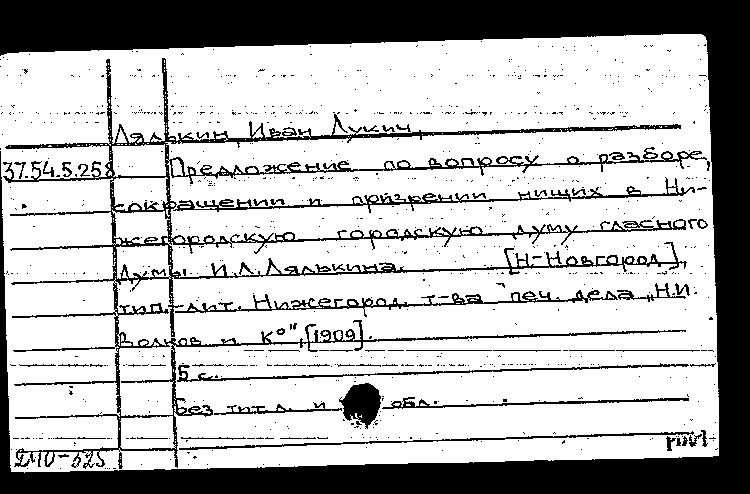 Лялькин, Иван Лукич.
37.54.5.258. Предложение по вопросу о разборе,
сокращении и призрении нищих в Ни-
жегородскую городскую думу гласного
Думы И.Л.Лялькина. [Н-Новгород],
тип.-лит. Нижегород. т-ва печ. дела „Н.И.
Волков и К°", [1909].
5 с.
Без тит.л. и обл.
2М0-525